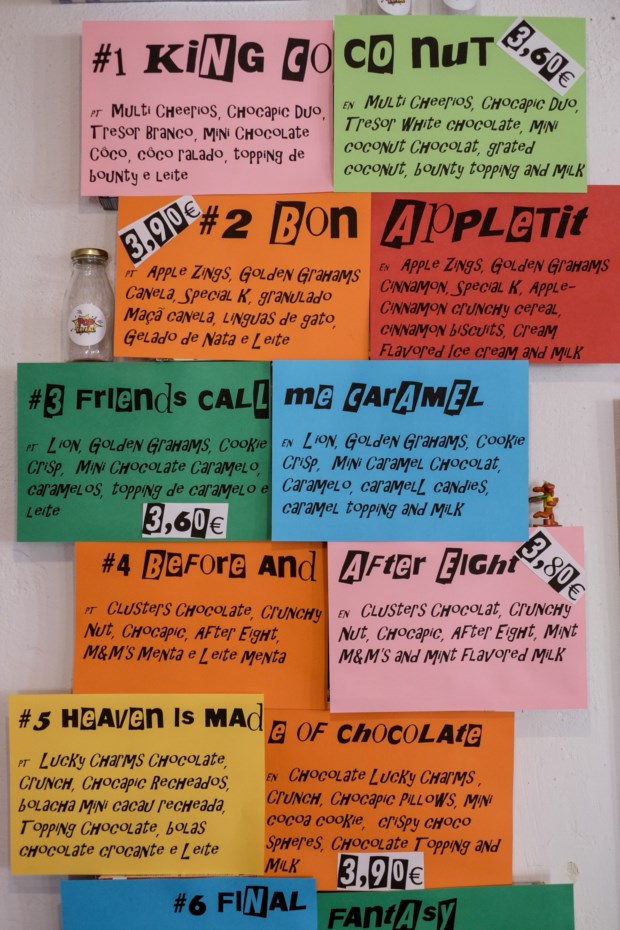 #1 King Co co nut 3,60€
PT Multi Cheerios, Chocapic Duo,
Tresor Branco, mini Chocolate
Côco, côco ralado, topping de
bounty e Leite
EN Multi Cheerios, Chocapic Duo,
Tresor White chocolate, mini
coconut Chocolat, grated
coconut, bounty topping and Milk
3,90€ #2 Bon Appletit
PT Apple Zings, Golden Grahams
Canela, Special K, granulado
Maçã canela, linguas de gato,
Gelado de Nata e Leite
EN Apple Zings, Golden Grahams
Cinnamon, Special K, Apple-
Cinnamon crunchy cereal,
cinnamon biscuits, Cream
Flavored Ice cream and Milk
#3 Friends call me caramel
PT Lion, Golden Grahams, Cookie
Crisp, Mini Chocolate Caramelo,
caramelos, topping de caramelo e
Leite
3,60€
EN Lion, Golden Grahams, Cookie
Crisp, Mini Caramel Chocolat,
Caramelo, caramell candies,
caramel topping and Milk
#4 Before and After Eight 3,80€
PT Clusters Chocolate, Crunchy
Nut, Chocapic, After Eight,
M&M's Menta e Leite Menta
EN Clusters Chocolat, Crunchy
Nut, Chocapic, After Eight, Mint
M&M's and Mint Flavored Milk
#5 Heaven is made of chocolate
PT Lucky Charms Chocolate,
Crunch, Chocapic Recheados,
bolacha mini cacau recheada,
Topping Chocolate, bolas
chocolate crocante e Leite
EN Chocolate Lucky Charms,
Crunch, Chocapic Pillows, mini
cocoa cookie, crispy choco
spheres, Chocolate Topping and
Milk
3,90€
#6 Final Fantasy